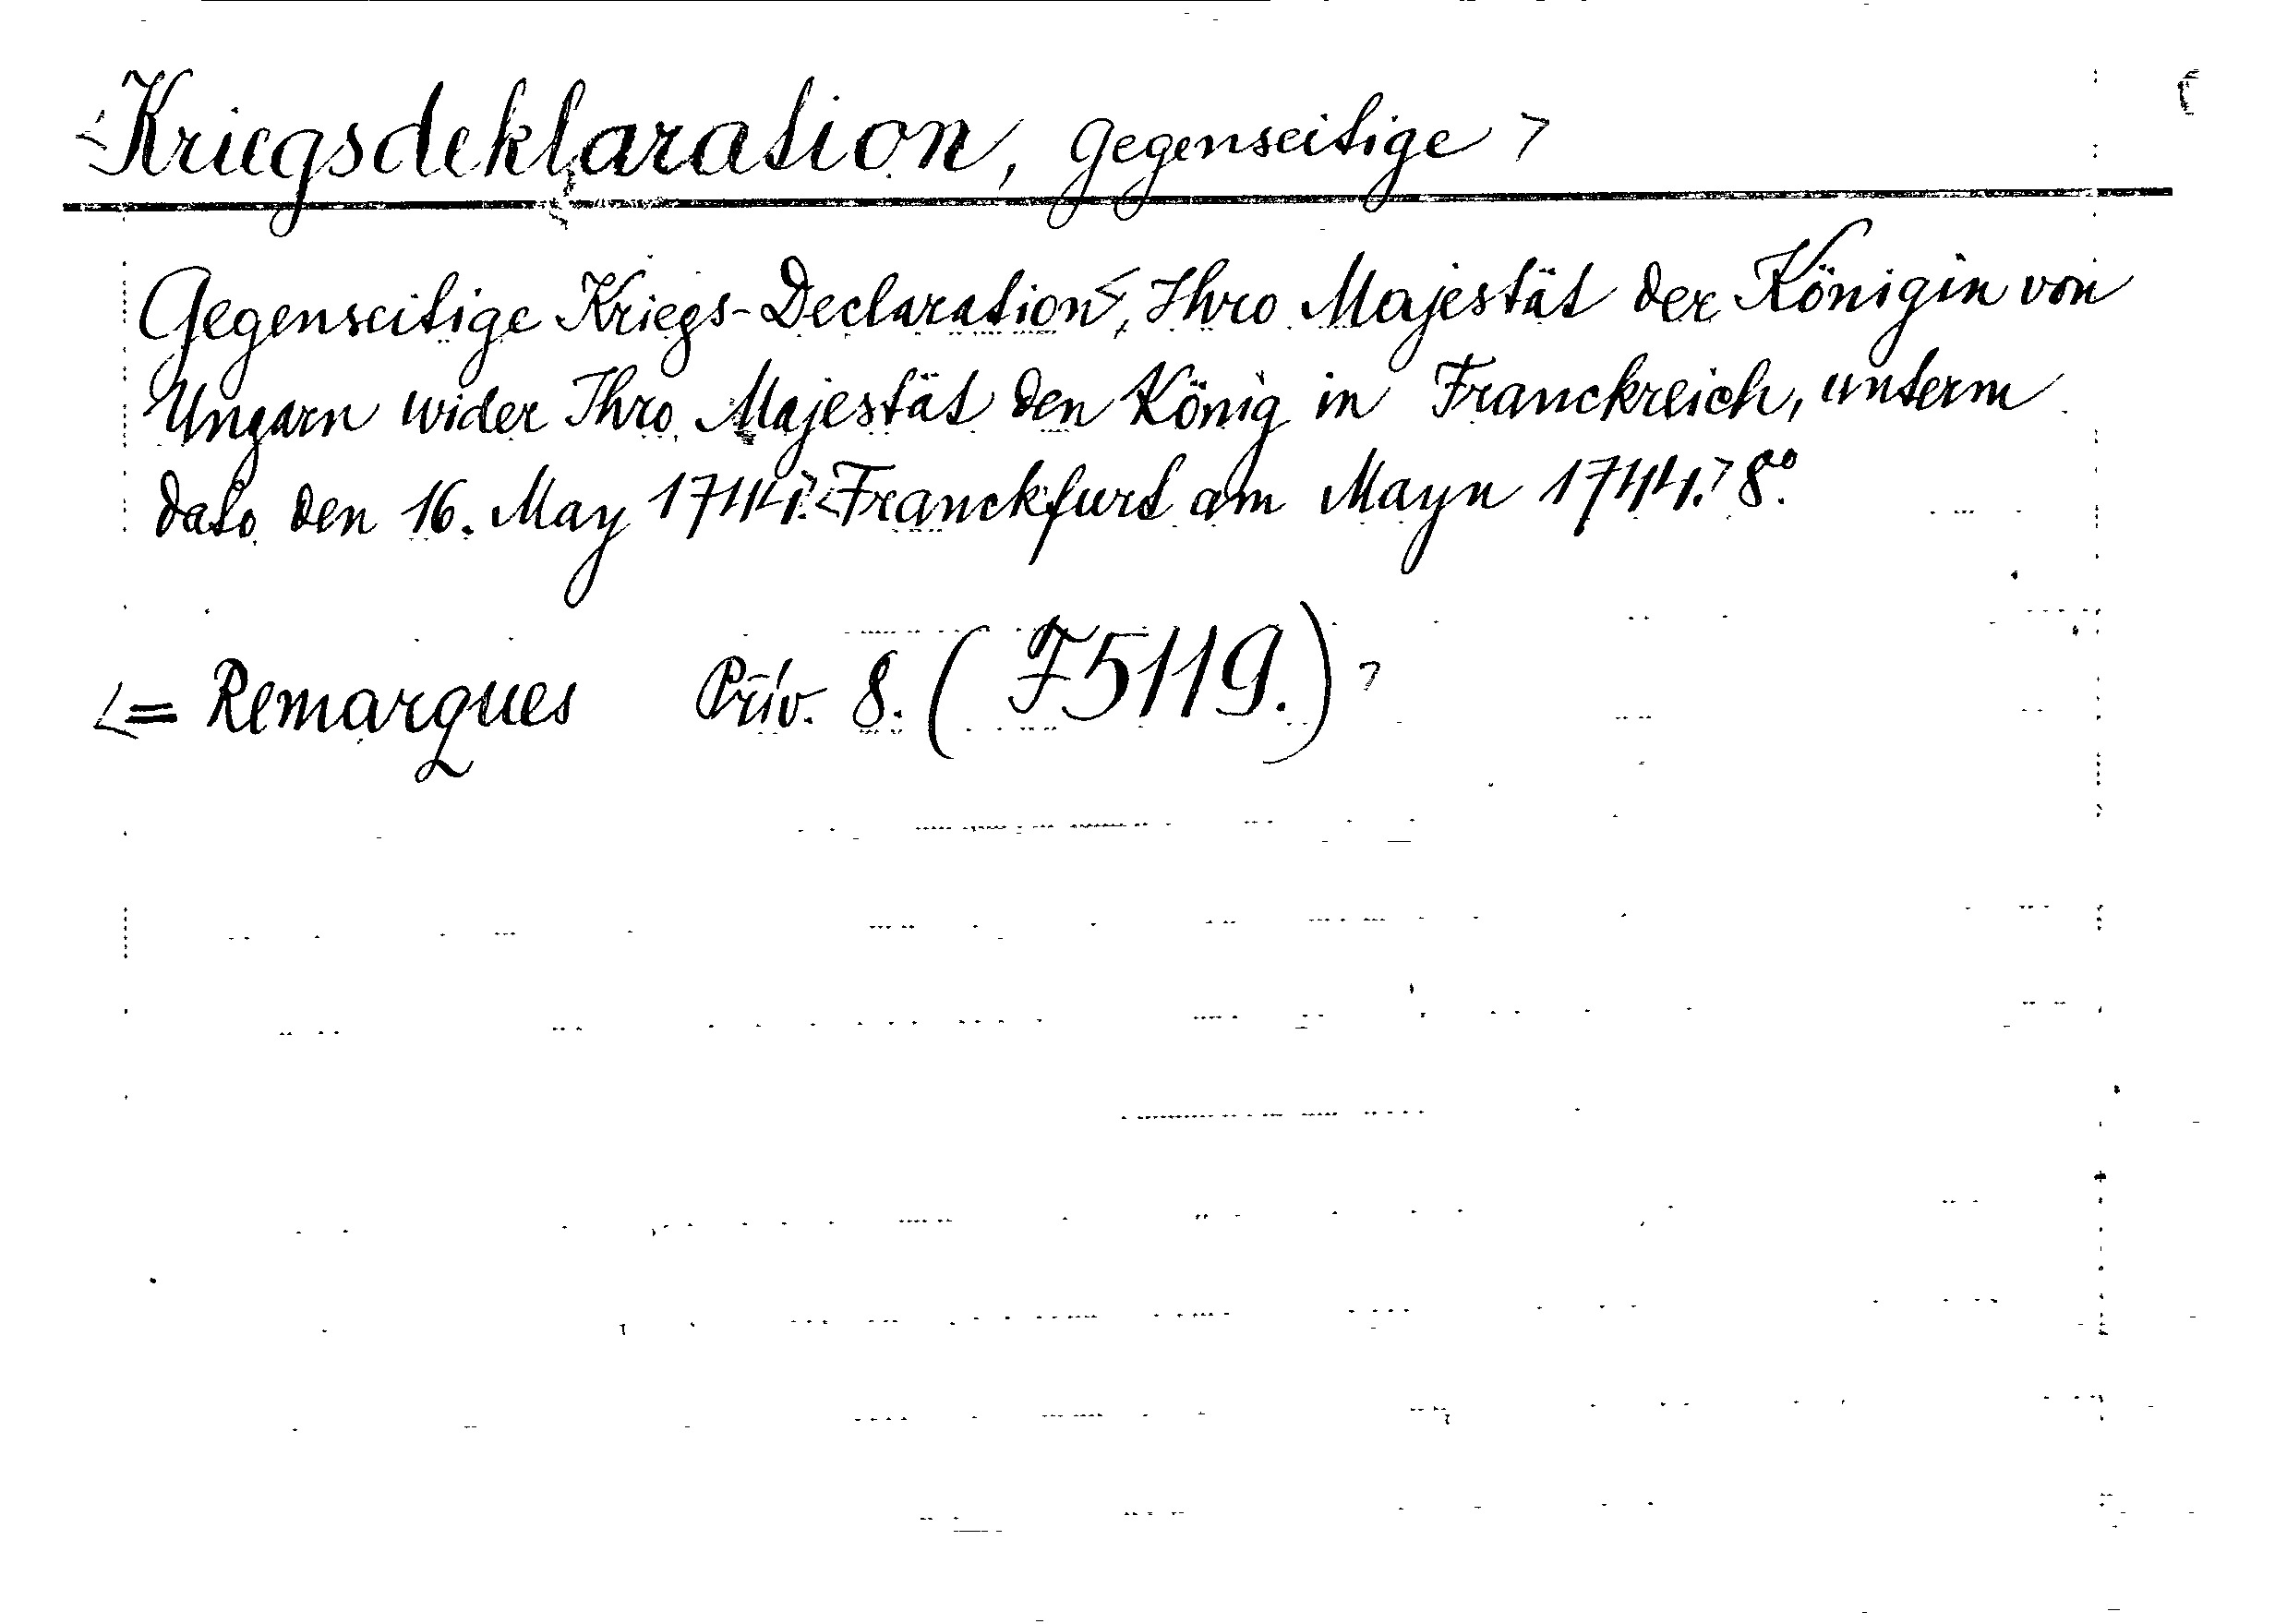 <Kriegsdeklaration, gegenseitige>
Gegenseitige Kriegs-Declaration<, Ihro Majestät der Königin von
Ungarn wider Ihro Majestät den König in Franckreich, unterm
dato den 16. May 1744.><Franckfurt am Mayn 1744.> 8°.
<= Remarques Priv. 8. (F5119.)>